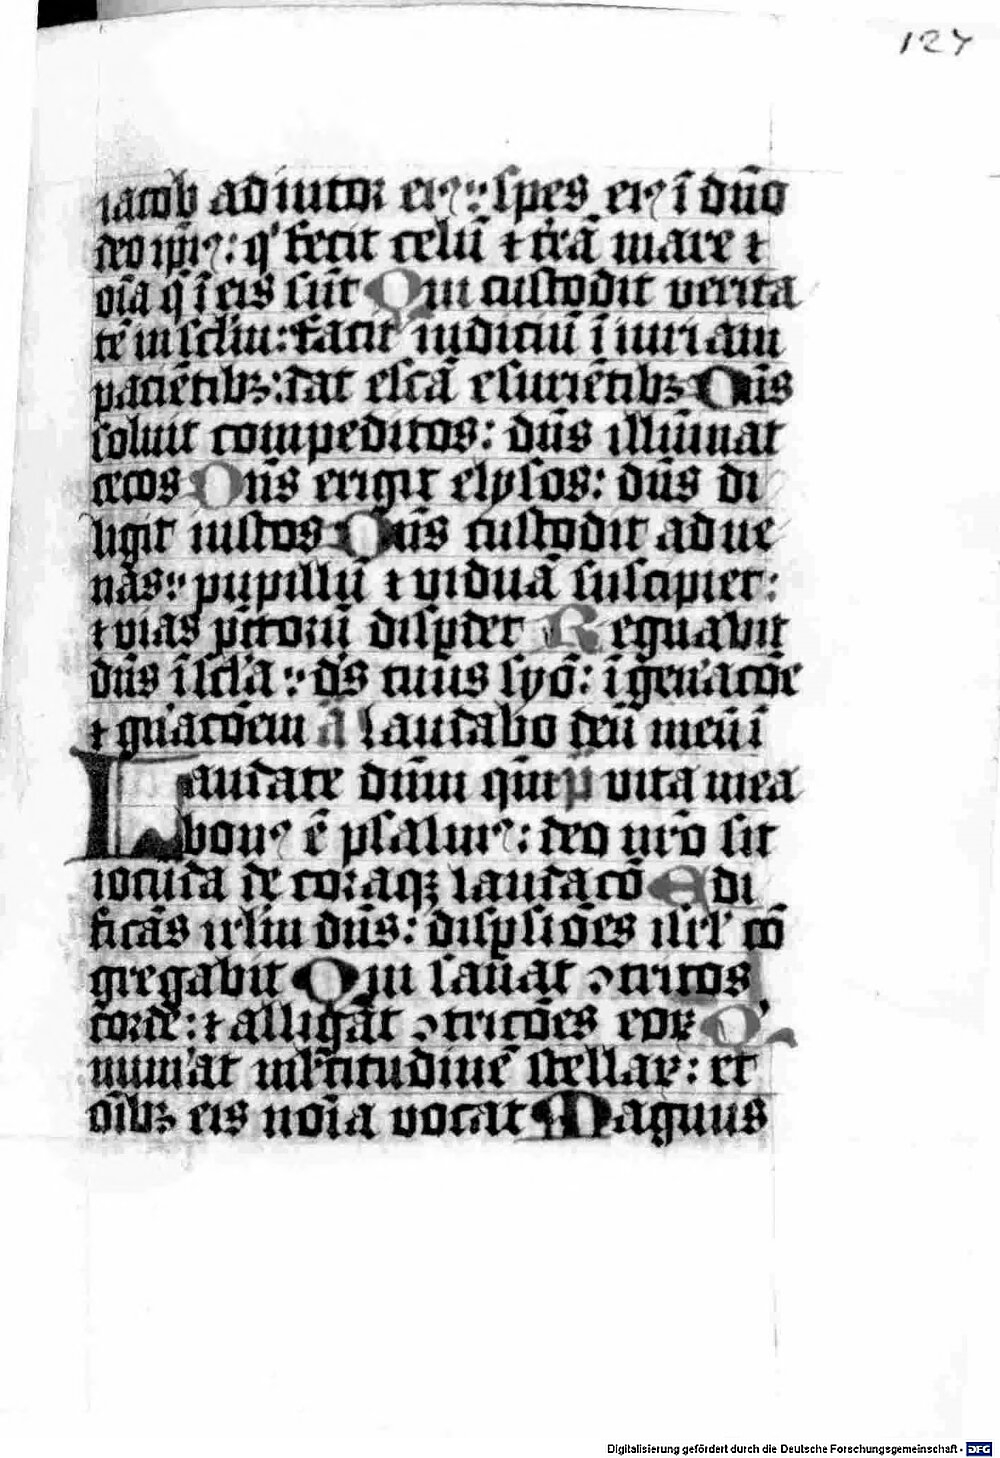 127
iacob adiutor eiꝰ: spes eiꝰ ĩ dño
deo ip̃iꝰ: q' fecit celũ ⁊ t̃rã mare ⁊
oĩa q̃ ĩ eis sũt Qui custodit verita
tẽ in sc̃lm: facit iudiciũ ĩiuriam
paciẽtibꝫ: dat escã esuriẽtibꝫ Dñs
soluit compeditos: dñs illũinat
cecos Dñs erigit elysos: dñs di
ligit iustos Dñs custodit adue
nãs: pupillũ ⁊ viduã suscipiet:
⁊ vias pc̃torũ disꝑdet Regnabit
dñs ĩ sc̃la: ds̃ tuus syõ: ĩ gen'acõe
⁊ gn'acõem ã Laudabo deũ meũ ĩ
Laudate dñm qm̃ p̃ vita mea
bonꝰ ẽ psalmꝰ: deo nr̃o sit
iocũda decoraqꝫ laudacõ Edi
ficãs irlm̃ dñs: disꝑsiões isrl' cõ
gregabit Qui sanat ꝯtritos
corde: ⁊ alligat ꝯtricões eoꝝ Q'
num'at ml'titudinẽ stellaꝝ: et
oĩbꝫ eis noĩa vocat Magnus
Digitalisierung gefördert durch die Deutsche Forschungsgemeinschaft - DFG